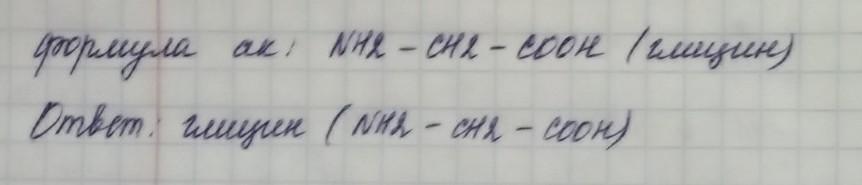 формула ак: NH2 - CH2 - COOH (глицин)
Ответ: глицин (NH2 - CH2 - COOH)